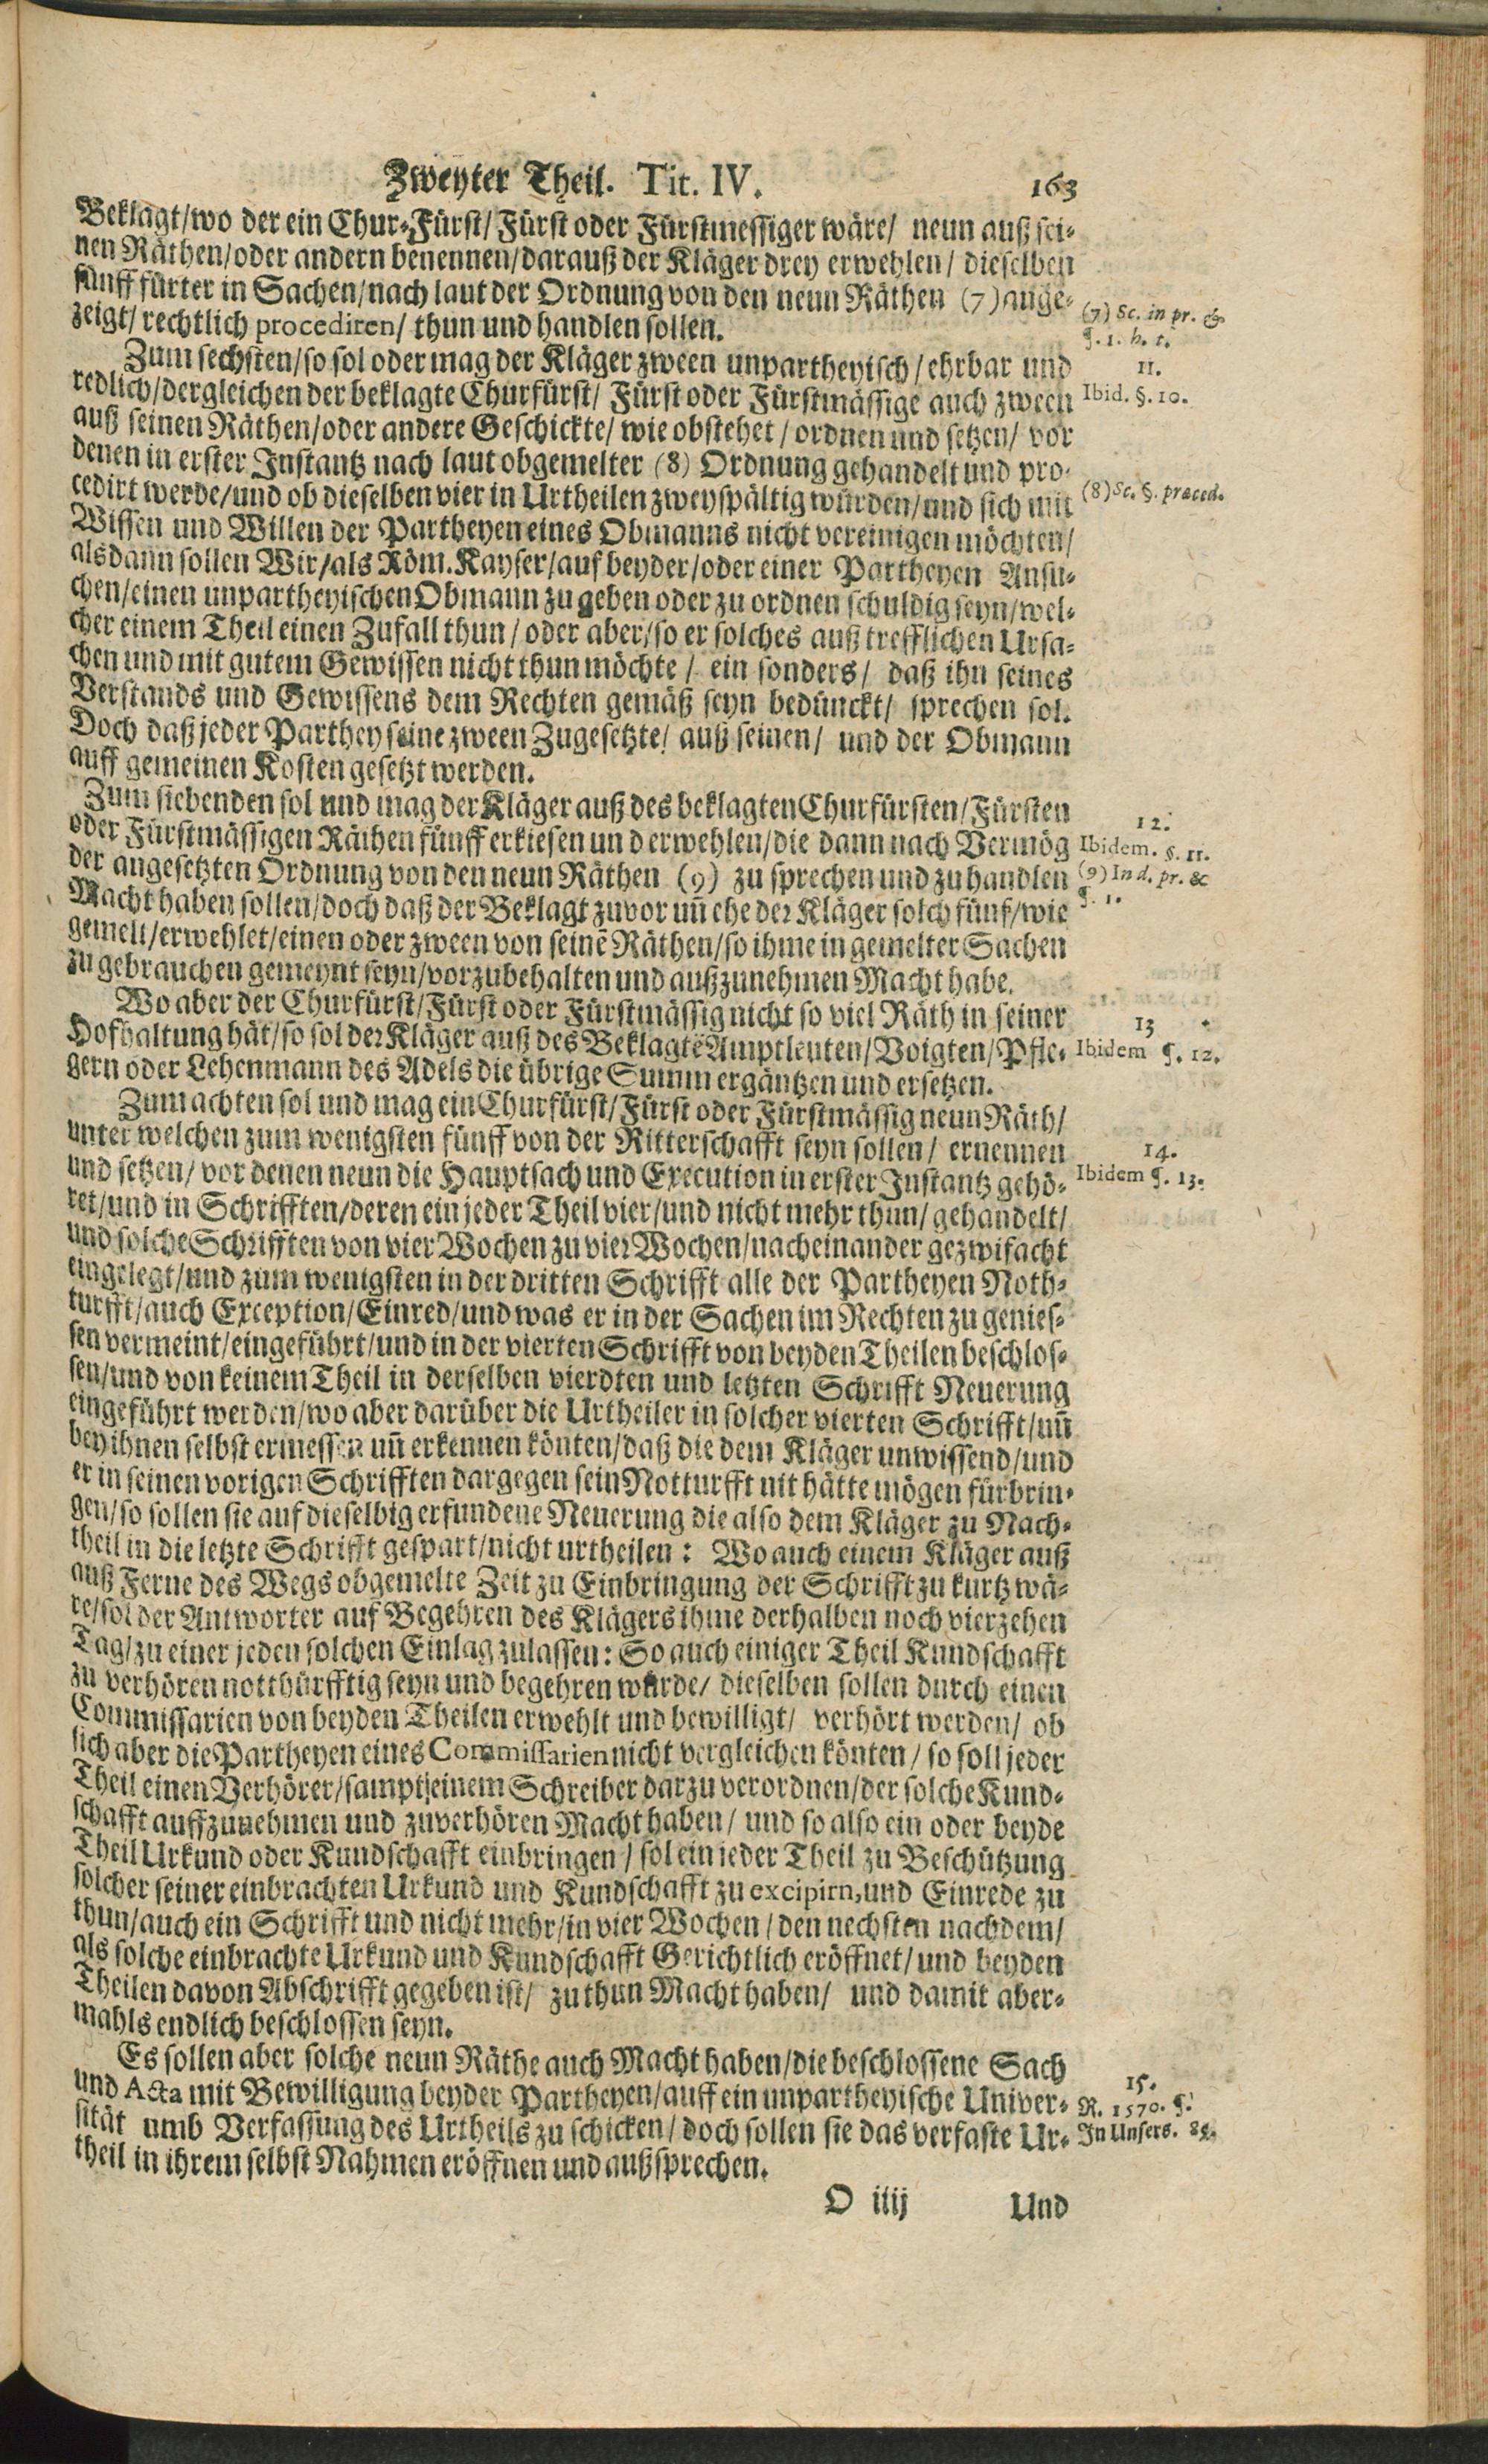 Zweyter Theil. Tit. IV. 163
Beklagt/wo der ein Chur-Fürst/Fürst oder Fürstmessiger wäre/ neun auß sei-
nen Räthen/oder andern benennen/darauß der Kläger drey erwehlen/ dieselben
fünff fürter in Sachen/nach laut der Ordnung von den neun Räthen (7) ange-
zeigt/rechtlich procediren/ thun und handlen sollen.
(7) Sc. in pr. &
¶. 1. h. t.
Zum sechsten/so sol oder mag der Kläger zween unpartheyisch/ehrbar und
redlich/dergleichen der beklagte Churfürst/ Fürst oder Fürstmässige auch zween
auß seinen Räthen/oder andere Geschickte/ wie obstehet/ordnen und setzen/ vor
denen in erster Instantz nach laut obgemelter (8) Ordnung gehandelt und pro-
cedirt werde/und ob dieselben vier in Urtheilen zweyspältig würden/und sich mit
Wissen und Willen der Partheyen eines Obmanns nicht vereinigen möchten/
alsdann sollen Wir/als Röm. Kayser/auf beyder/oder einer Partheyen Ansu-
chen/einen unpartheyischen Obmann zu geben oder zu ordnen schuldig seyn/wel-
cher einem Theil einen Zufall thun/oder aber/so er solches auß trefflichen Ursa-
chen und mit gutem Gewissen nicht thun möchte/ ein sonders/ daß ihn seines
Verstands und Gewissens dem Rechten gemäß seyn bedünckt/ sprechen sol.
Doch daß jeder Parthey seine zween Zugesetzte/ auß seinen/ und der Obmann
auff gemeinen Kosten gesetzt werden.
11.
Ibid. §. 10.
(8) Sc. §. præced.
Zum siebenden sol und mag der Kläger auß des beklagten Churfürsten/Fürsten
oder Fürstmässigen Räthen fünff erkiesen und erwehlen/die dann nach Vermög
der angesetzten Ordnung von den neun Räthen (9) zu sprechen und zu handlen
Macht haben sollen/doch daß der Beklagt zuvor uñ ehe der Kläger solch fünf/wie
gemelt/erwehlet/einen oder zween von seinē Räthen/so ihme in gemelter Sachen
zu gebrauchen gemeynt seyn/vorzubehalten und außzunehmen Macht habe.
12.
Ibidem. §. 11.
(9) In d. pr. &
¶. 1.
Wo aber der Churfürst/Fürst oder Fürstmässig nicht so viel Räth in seiner
Hofhaltung hät/so sol der Kläger auß des Beklagtē Amptleuten/Voigten/Pfle-
gern oder Lehenmann des Adels die übrige Summ ergäntzen und ersetzen.
13
Ibidem ¶. 12.
Zum achten sol und mag ein Churfürst/Fürst oder Fürstmässig neun Räth/
unter welchen zum wenigsten fünff von der Ritterschafft seyn sollen/ ernennen
und setzen/ vor denen neun die Hauptsach und Execution in erster Instantz gehö-
ret/und in Schrifften/deren ein jeder Theil vier/und nicht mehr thun/ gehandelt/
und solche Schrifften von vier Wochen zu vier Wochen/nach einander gezwifacht
eingelegt/und zum wenigsten in der dritten Schrifft alle der Partheyen Noth-
turfft/auch Exception/Einred/und was er in der Sachen im Rechten zu genies-
sen vermeint/eingeführt/und in der vierten Schrifft von beyden Theilen beschlos-
sen/und von keinem Theil in derselben vierdten und letzten Schrifft Neuerung
eingeführt werden/wo aber darüber die Urtheiler in solcher vierten Schrifft/uñ
bey ihnen selbst ermessen uñ erkennen könten/daß die dem Kläger unwissend/und
er in seinen vorigen Schrifften dargegen sein Notturfft nit hätte mögen fürbrin-
gen/so sollen sie auf dieselbig erfundene Neuerung die also dem Kläger zu Nach-
theil in die letzte Schrifft gespart/nicht urtheilen: Wo auch einem Kläger auß
auß Ferne des Wegs obgemelte Zeit zu Einbringung der Schrifft zu kurtz wä-
re/sol der Antworter auf Begehren des Klägers ihme derhalben noch vierzehen
Tag/zu einer jeden solchen Einlag zulassen: So auch einiger Theil Kundschafft
zu verhören notthürfftig seyn und begehren würde/ dieselben sollen durch einen
Commissarien von beyden Theilen erwehlt und bewilligt/ verhört werden/ ob
sich aber die Partheyen eines Commissarien nicht vergleichen könten/ so soll jeder
Theil einen Verhörer/sampt seinem Schreiber darzu verordnen/der solche Kund-
schafft auffzunehmen und zuverhören Macht haben/ und so also ein oder beyde
Theil Urkund oder Kundschafft einbringen/ sol ein jeder Theil zu Beschützung
solcher seiner einbrachten Urkund und Kundschafft zu excipirn, und Einrede zu
thun/auch ein Schrifft und nicht mehr/in vier Wochen/den nechsten nachdem/
als solche einbrachte Urkund und Kundschafft Gerichtlich eröffnet/und beyden
Theilen davon Abschrifft gegeben ist/ zu thun Macht haben/ und damit aber-
mahls endlich beschlossen seyn.
14.
Ibidem ¶. 13.
Es sollen aber solche neun Räthe auch Macht haben/die beschlossene Sach
und Acta mit Bewilligung beyder Partheyen/auff ein unpartheyische Univer-
sität umb Verfassung des Urtheils zu schicken/doch sollen sie das verfaste Ur-
theil in ihrem selbst Nahmen eröffnen und außsprechen.
15.
R. 1570. ¶.
In Unsers. 85.
O iiij Und